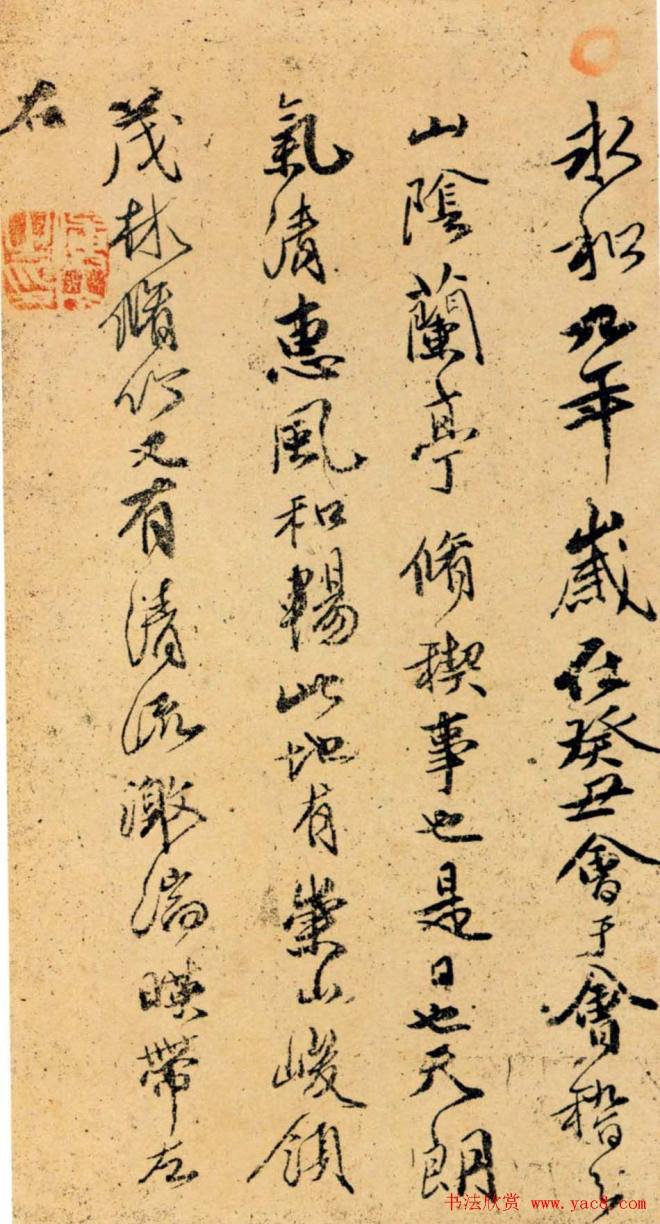 永和九年歲在癸丑會于會稽之
山陰蘭亭脩禊事也是日也天朗
氣清惠風和暢此地有崇山峻領
茂林脩竹又有清流激湍暎帶左
右
书法欣赏 www.yac8.com